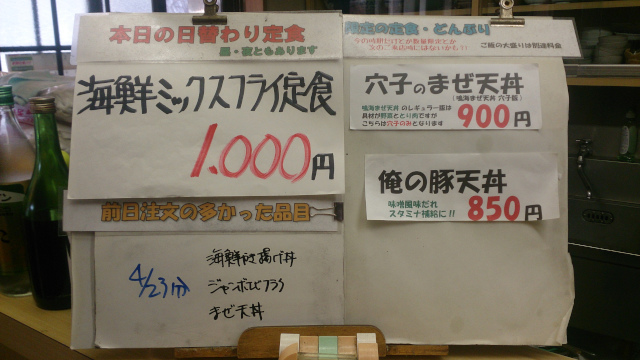 本日の日替わり定食
昼・夜ともあります
海鮮ミックスフライ定食
1.000円
前日注文の多かった品目
4/23分
海鮮かき揚げ丼
ジャンボエビフライ
まぜ天丼
限定の定食・どんぶり
ご飯の大盛りは別途料金
穴子のまぜ天丼
(鳴海まぜ天丼 穴子版)
鳴海まぜ天丼 のレギュラー版は
具材が野菜ととり肉ですが
こちらは穴子のみとなります
900円
俺の豚天丼
味噌風味だれ
スタミナ補給に!!
850円